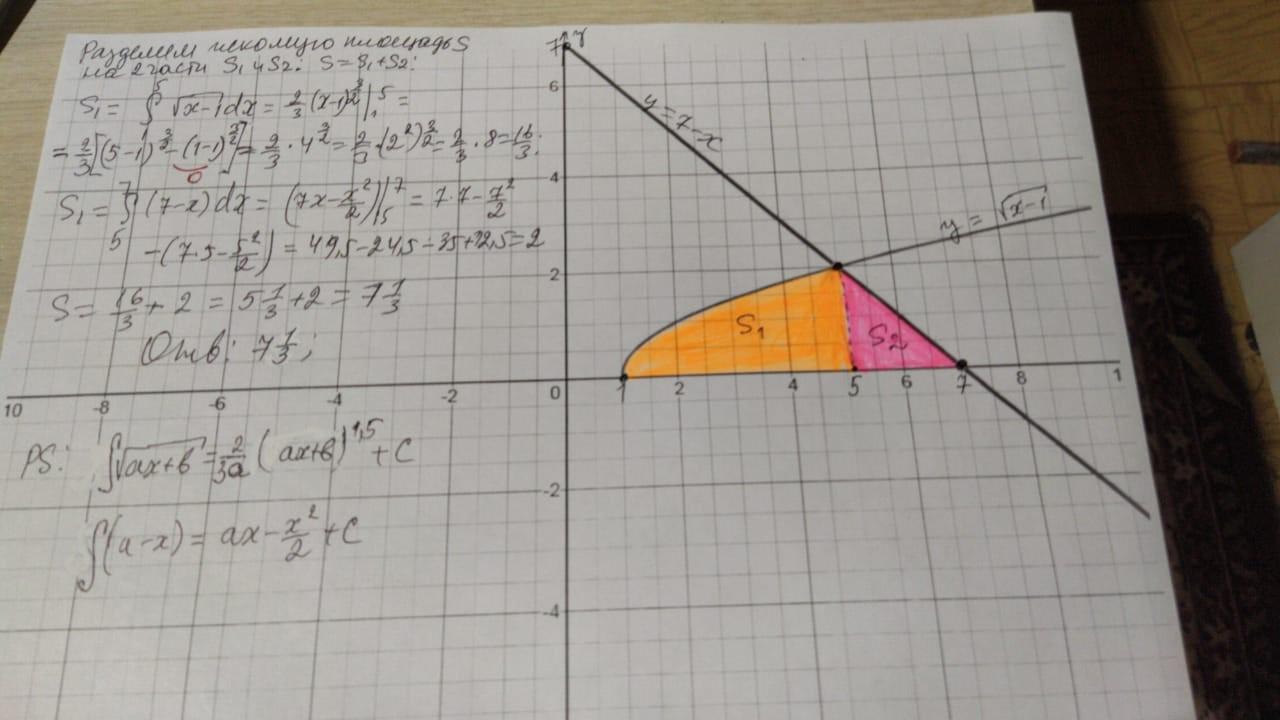 Разделим искомую площадь S
на 2 части S₁ и S₂: S=S₁+S₂:
S₁ = ∫₁⁵ √(x-1) dx = 2/3 (x-1)^(3/2) |₁⁵ =
= 2/3 [(5-1)^(3/2) - (1-1)^(3/2)] = 2/3 · 4^(3/2) = 2/3 · (2²)^(3/2) = 2/3 · 8 = 16/3;
0
S₁ = ∫₅⁷ (7-x) dx = (7x - x²/2) |₅⁷ = 7·7 - 7²/2
-(7·5 - 5²/2) = 49,5-24,5-35+12,5=2
S = 16/3 + 2 = 5 1/3 + 2 = 7 1/3
Отв: 7 1/3;
PS: ∫√(ax+b) = 2/3a (ax+b)^1,5 + C
∫(a-x) = ax - x²/2 + C
y
7
6
4
2
0
-2
-4
10 -8 -6 -4 -2
1 2 4 5 6 7 8 1
y = 7-x
y = √(x-1)
S₁
S₂